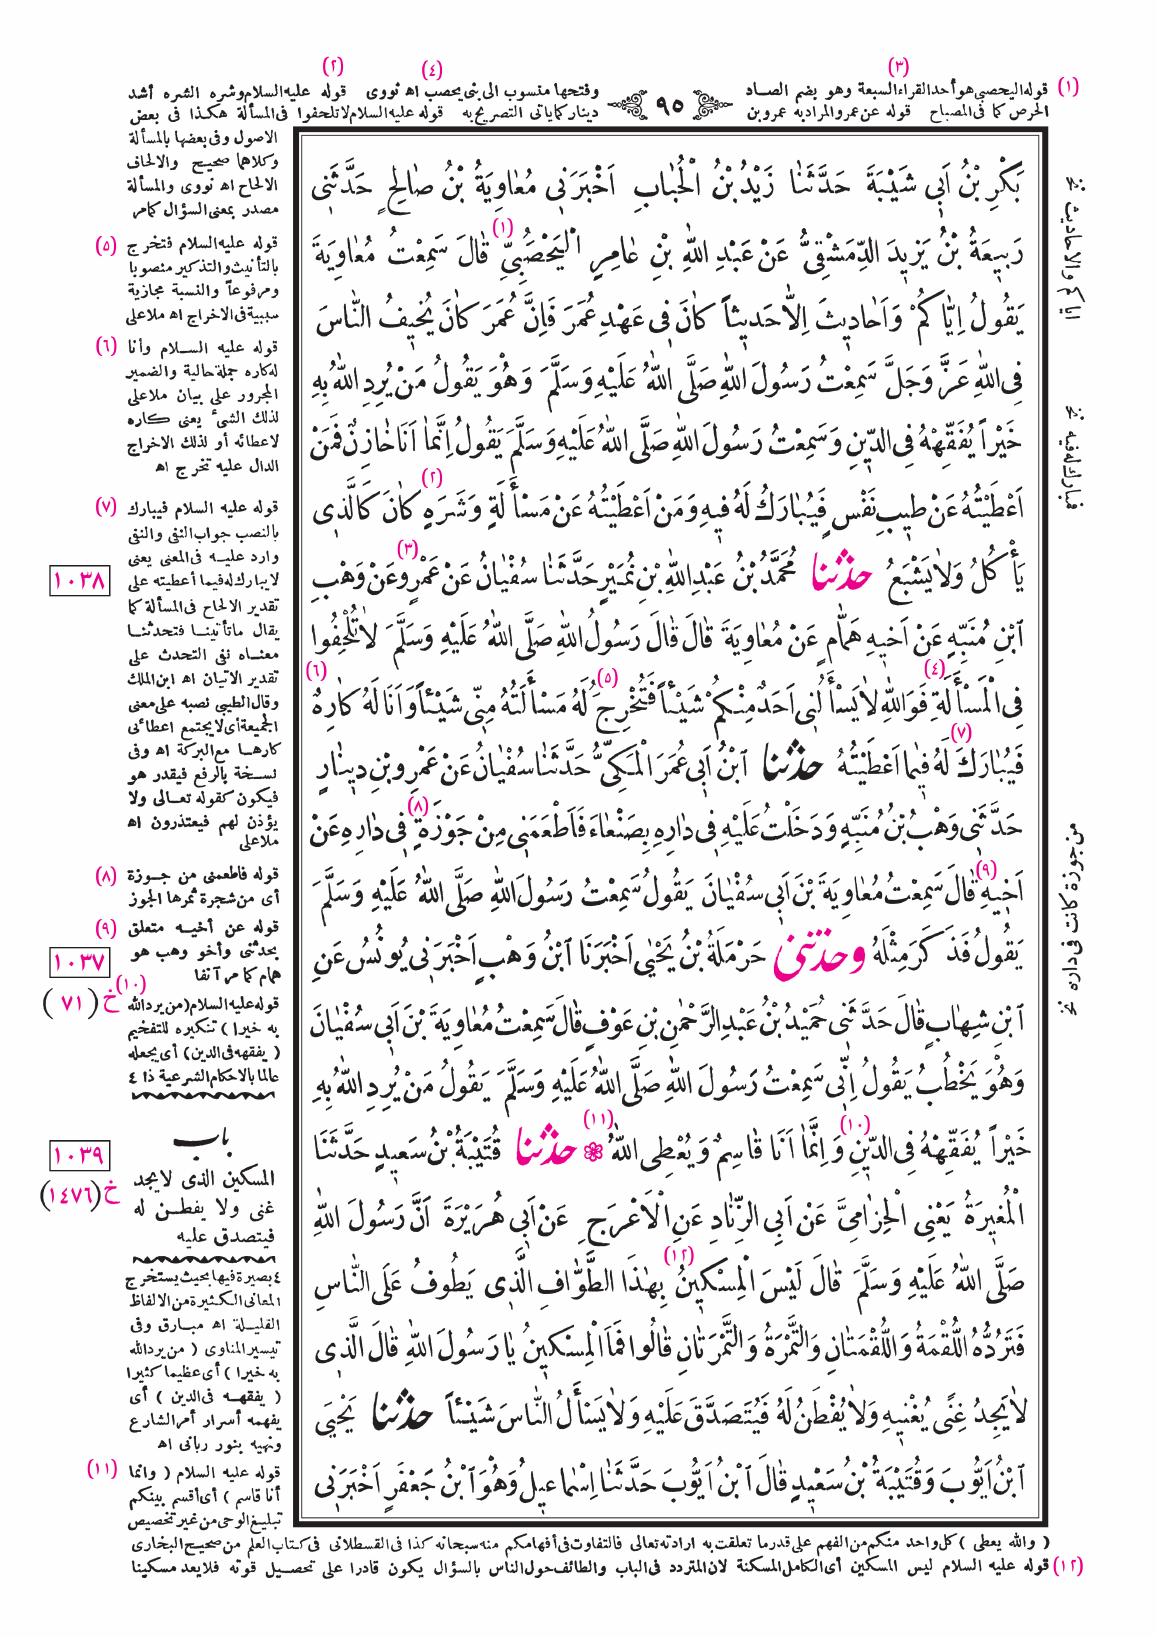 (٣) (٤) (٢)
(١) قوله اليحصبي هو أحد القراء السبعة وهو بضم الصاد
وفتحها منسوب الى بنى يحصب اه نووى قوله عليه السلام وشره الشره أشد
الحرص كما فى المصباح قوله عن عمرو المراد به عمرو بن
٩٥
دينار كما يأتى التصريح به قوله عليه السلام لا تلحفوا فى المسألة هكذا فى بعض
الاصول وفى بعضها بالمسألة
وكلاهما صحيح والالحاف
الالحاح اه نووى والمسألة
مصدر بمعنى السؤال كما مر
(٥) قوله عليه السلام فتخرج
بالتأنيث والتذكير منصوبا
ومرفوعاً والنسبة مجازية
سببية فى الاخراج اه ملاعلى
(٦) قوله عليه السلام وأنا
له كاره جملة حالية والضمير
المجرور على بيان ملاعلى
لذلك الشىء يعنى كاره
لاعطائه أو لذلك الاخراج
الدال عليه تخرج اه
(٧) قوله عليه السلام فيبارك
بالنصب جواب النفى والنفى
وارد عليه فى المعنى يعنى
لا يبارك له فيما أعطيته على
تقدير الالحاح فى المسألة كما
يقال ماتأتينا فتحدثنا
معناه نفى التحدث على
تقدير الاتيان اه ابن الملك
وقال الطيبى نصبه على معنى
الجمعية أى لا يجتمع اعطائى
كارها مع البركة اه وفى
نسخة بالرفع فيقدر هو
فيكون كقوله تعالى ولا
يؤذن لهم فيعتذرون اه
ملاعلى
(٨) قوله فاطعمنى من جوزة
أى من شجرة ثمرها الجوز
(٩) قوله عن أخيه متعلق
بحدثنى وأخو وهب هو
همام كما مر آنفا
(١٠)
قوله عليه السلام (من يرد الله
به خيرا) تنكيره للتفخيم
(يفقهه فى الدين) أى يجعله
عالما بالاحكام الشرعية ذا ٤
باب
المسكين الذى لا يجد
غنى ولا يفطن له
فيتصدق عليه
٤ بصيرة فيها بحيث يستخرج
المعانى الكثيرة من الالفاظ
القليلة اه مبارق وفى
تيسير المناوى (من يرد الله
به خيرا) أى عظيما كثيرا
(يفقهه فى الدين) أى
يفهمه أسرار أمر الشارع
ونهيه بنور ربانى اه
(١١) قوله عليه السلام (وانما
أنا قاسم) أى أقسم بينكم
تبليغ الوحى من غير تخصيص
١٠٣٨
١٠٣٧
خ (٧١)
١٠٣٩
خ (١٤٧٦)
بَكْرِ بْنُ اَبِي شَيْبَةَ حَدَّثَنَا زَيْدُ بْنُ الْحُبَابِ اَخْبَرَنِي مُعَاوِيَةُ بْنُ صَالِحٍ حَدَّثَنِي
رَبِيعَةُ بْنُ يَزِيدَ الدِّمَشْقِىُّ عَنْ عَبْدِ اللهِ بْنِ عَامِرٍ الْيَحْصَبِيِّ (١) قَالَ سَمِعْتُ مُعَاوِيَةَ
يَقُولُ اِيَّاكُمْ وَاَحَادِيثَ اِلَّا حَدِيثاً كَانَ فِى عَهْدِ عُمَرَ فَاِنَّ عُمَرَ كَانَ يُخِيفُ النَّاسَ
فِى اللهِ عَزَّ وَجَلَّ سَمِعْتُ رَسُولَ اللهِ صَلَّى اللهُ عَلَيْهِ وَسَلَّمَ وَهُوَ يَقُولُ مَنْ يُرِدِ اللهُ بِهِ
خَيْراً يُفَقِّهْهُ فِى الدِّينِ وَسَمِعْتُ رَسُولَ اللهِ صَلَّى اللهُ عَلَيْهِ وَسَلَّمَ يَقُولُ اِنَّمَا اَنَا خَازِنٌ فَمَنْ
اَعْطَيْتُهُ عَنْ طِيبِ نَفْسٍ فَيُبَارَكُ لَهُ فِيهِ وَمَنْ اَعْطَيْتُهُ عَنْ مَسْأَلَةٍ وَشَرَهٍ (٢) كَانَ كَالَّذِى
يَأْكُلُ وَلاَ يَشْبَعُ حَدَّثَنَا مُحَمَّدُ بْنُ عَبْدِ اللهِ بْنِ نُمَيْرٍ حَدَّثَنَا سُفْيَانُ عَنْ عَمْرٍو (٣) عَنْ وَهْبِ
ابْنِ مُنَبِّهٍ عَنْ اَخِيهِ هَمَّامٍ عَنْ مُعَاوِيَةَ قَالَ قَالَ رَسُولُ اللهِ صَلَّى اللهُ عَلَيْهِ وَسَلَّمَ لاَ تُلْحِفُوا
فِى الْمَسْأَلَةِ (٤) فَوَاللهِ لاَ يَسْأَلُنِى اَحَدٌ مِنْكُمْ شَيْئاً فَتُخْرِجَ (٥) لَهُ مَسْأَلَتُهُ مِنِّى شَيْئاً وَاَنَا لَهُ كَارِهٌ (٦)
فَيُبَارَكَ (٧) لَهُ فِيمَا اَعْطَيْتُهُ حَدَّثَنَا ابْنُ اَبِى عُمَرَ الْمَكِّىُّ حَدَّثَنَا سُفْيَانُ عَنْ عَمْرِو بْنِ دِينَارٍ
حَدَّثَنِى وَهْبُ بْنُ مُنَبِّهٍ وَدَخَلْتُ عَلَيْهِ فِى دَارِهِ بِصَنْعَاءَ فَاَطْعَمَنِى مِنْ جَوْزَةٍ (٨) فِى دَارِهِ عَنْ
اَخِيهِ (٩) قَالَ سَمِعْتُ مُعَاوِيَةَ بْنَ اَبِى سُفْيَانَ يَقُولُ سَمِعْتُ رَسُولَ اللهِ صَلَّى اللهُ عَلَيْهِ وَسَلَّمَ
يَقُولُ فَذَكَرَ مِثْلَهُ وَحَدَّثَنِى حَرْمَلَةُ بْنُ يَحْيَى اَخْبَرَنَا ابْنُ وَهْبٍ اَخْبَرَنِى يُونُسُ عَنِ
ابْنِ شِهَابٍ قَالَ حَدَّثَنِى حُمَيْدُ بْنُ عَبْدِ الرَّحْمٰنِ بْنِ عَوْفٍ قَالَ سَمِعْتُ مُعَاوِيَةَ بْنَ اَبِى سُفْيَانَ
وَهُوَ يَخْطُبُ يَقُولُ اِنِّى سَمِعْتُ رَسُولَ اللهِ صَلَّى اللهُ عَلَيْهِ وَسَلَّمَ يَقُولُ مَنْ يُرِدِ اللهُ بِهِ
خَيْراً يُفَقِّهْهُ فِى الدِّينِ (١٠) وَاِنَّمَا اَنَا قَاسِمٌ وَيُعْطِى اللهُ (١١) ❁ حَدَّثَنَا قُتَيْبَةُ بْنُ سَعِيدٍ حَدَّثَنَا
الْمُغِيرَةُ يَعْنِى الْحِزَامِىَّ عَنْ اَبِى الزِّنَادِ عَنِ الْاَعْرَجِ عَنْ اَبِى هُرَيْرَةَ اَنَّ رَسُولَ اللهِ
صَلَّى اللهُ عَلَيْهِ وَسَلَّمَ قَالَ لَيْسَ الْمِسْكِينُ (١٢) بِهٰذَا الطَّوَّافِ الَّذِى يَطُوفُ عَلَى النَّاسِ
فَتَرُدُّهُ اللُّقْمَةُ وَاللُّقْمَتَانِ وَالتَّمْرَةُ وَالتَّمْرَتَانِ قَالُوا فَمَا الْمِسْكِينُ يَا رَسُولَ اللهِ قَالَ الَّذِى
لاَ يَجِدُ غِنًى يُغْنِيهِ وَلاَ يُفْطَنُ لَهُ فَيُتَصَدَّقَ عَلَيْهِ وَلاَ يَسْأَلُ النَّاسَ شَيْئاً حَدَّثَنَا يَحْيَى
ابْنُ اَيُّوبَ وَقُتَيْبَةُ بْنُ سَعِيدٍ قَالَ ابْنُ اَيُّوبَ حَدَّثَنَا اِسْمَاعِيلُ وَهُوَ ابْنُ جَعْفَرٍ اَخْبَرَنِى
اياكم والاحاديث نخ
فيبارك له فيه نخ
من جوزة كانت فى داره نخ
(والله يعطى) كل واحد منكم من الفهم على قدر ما تعلقت به ارادته تعالى فالتفاوت فى أفهامكم منه سبحانه كذا فى القسطلانى فى كتاب العلم من صحيح البخارى
(١٢) قوله عليه السلام ليس المسكين أى الكامل المسكنة لان المتردد فى الباب والطائف حول الناس بالسؤال يكون قادرا على تحصيل قوته فلا يعد مسكينا